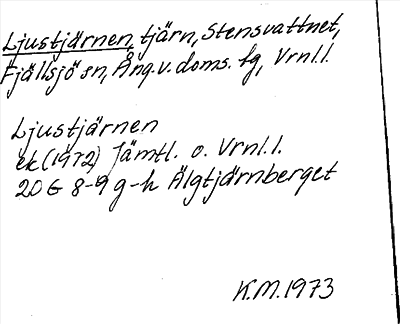 Ljustjärnen, tjärn, Stensvattnet,
Fjällsjö sn, Ång.v.doms. fg, Vrnl.l.
Ljustjärnen
ek (1972) Jämtl. o. Vrnl.l.
20 G 8-9 g-h Älgtjärnberget
K.M. 1973